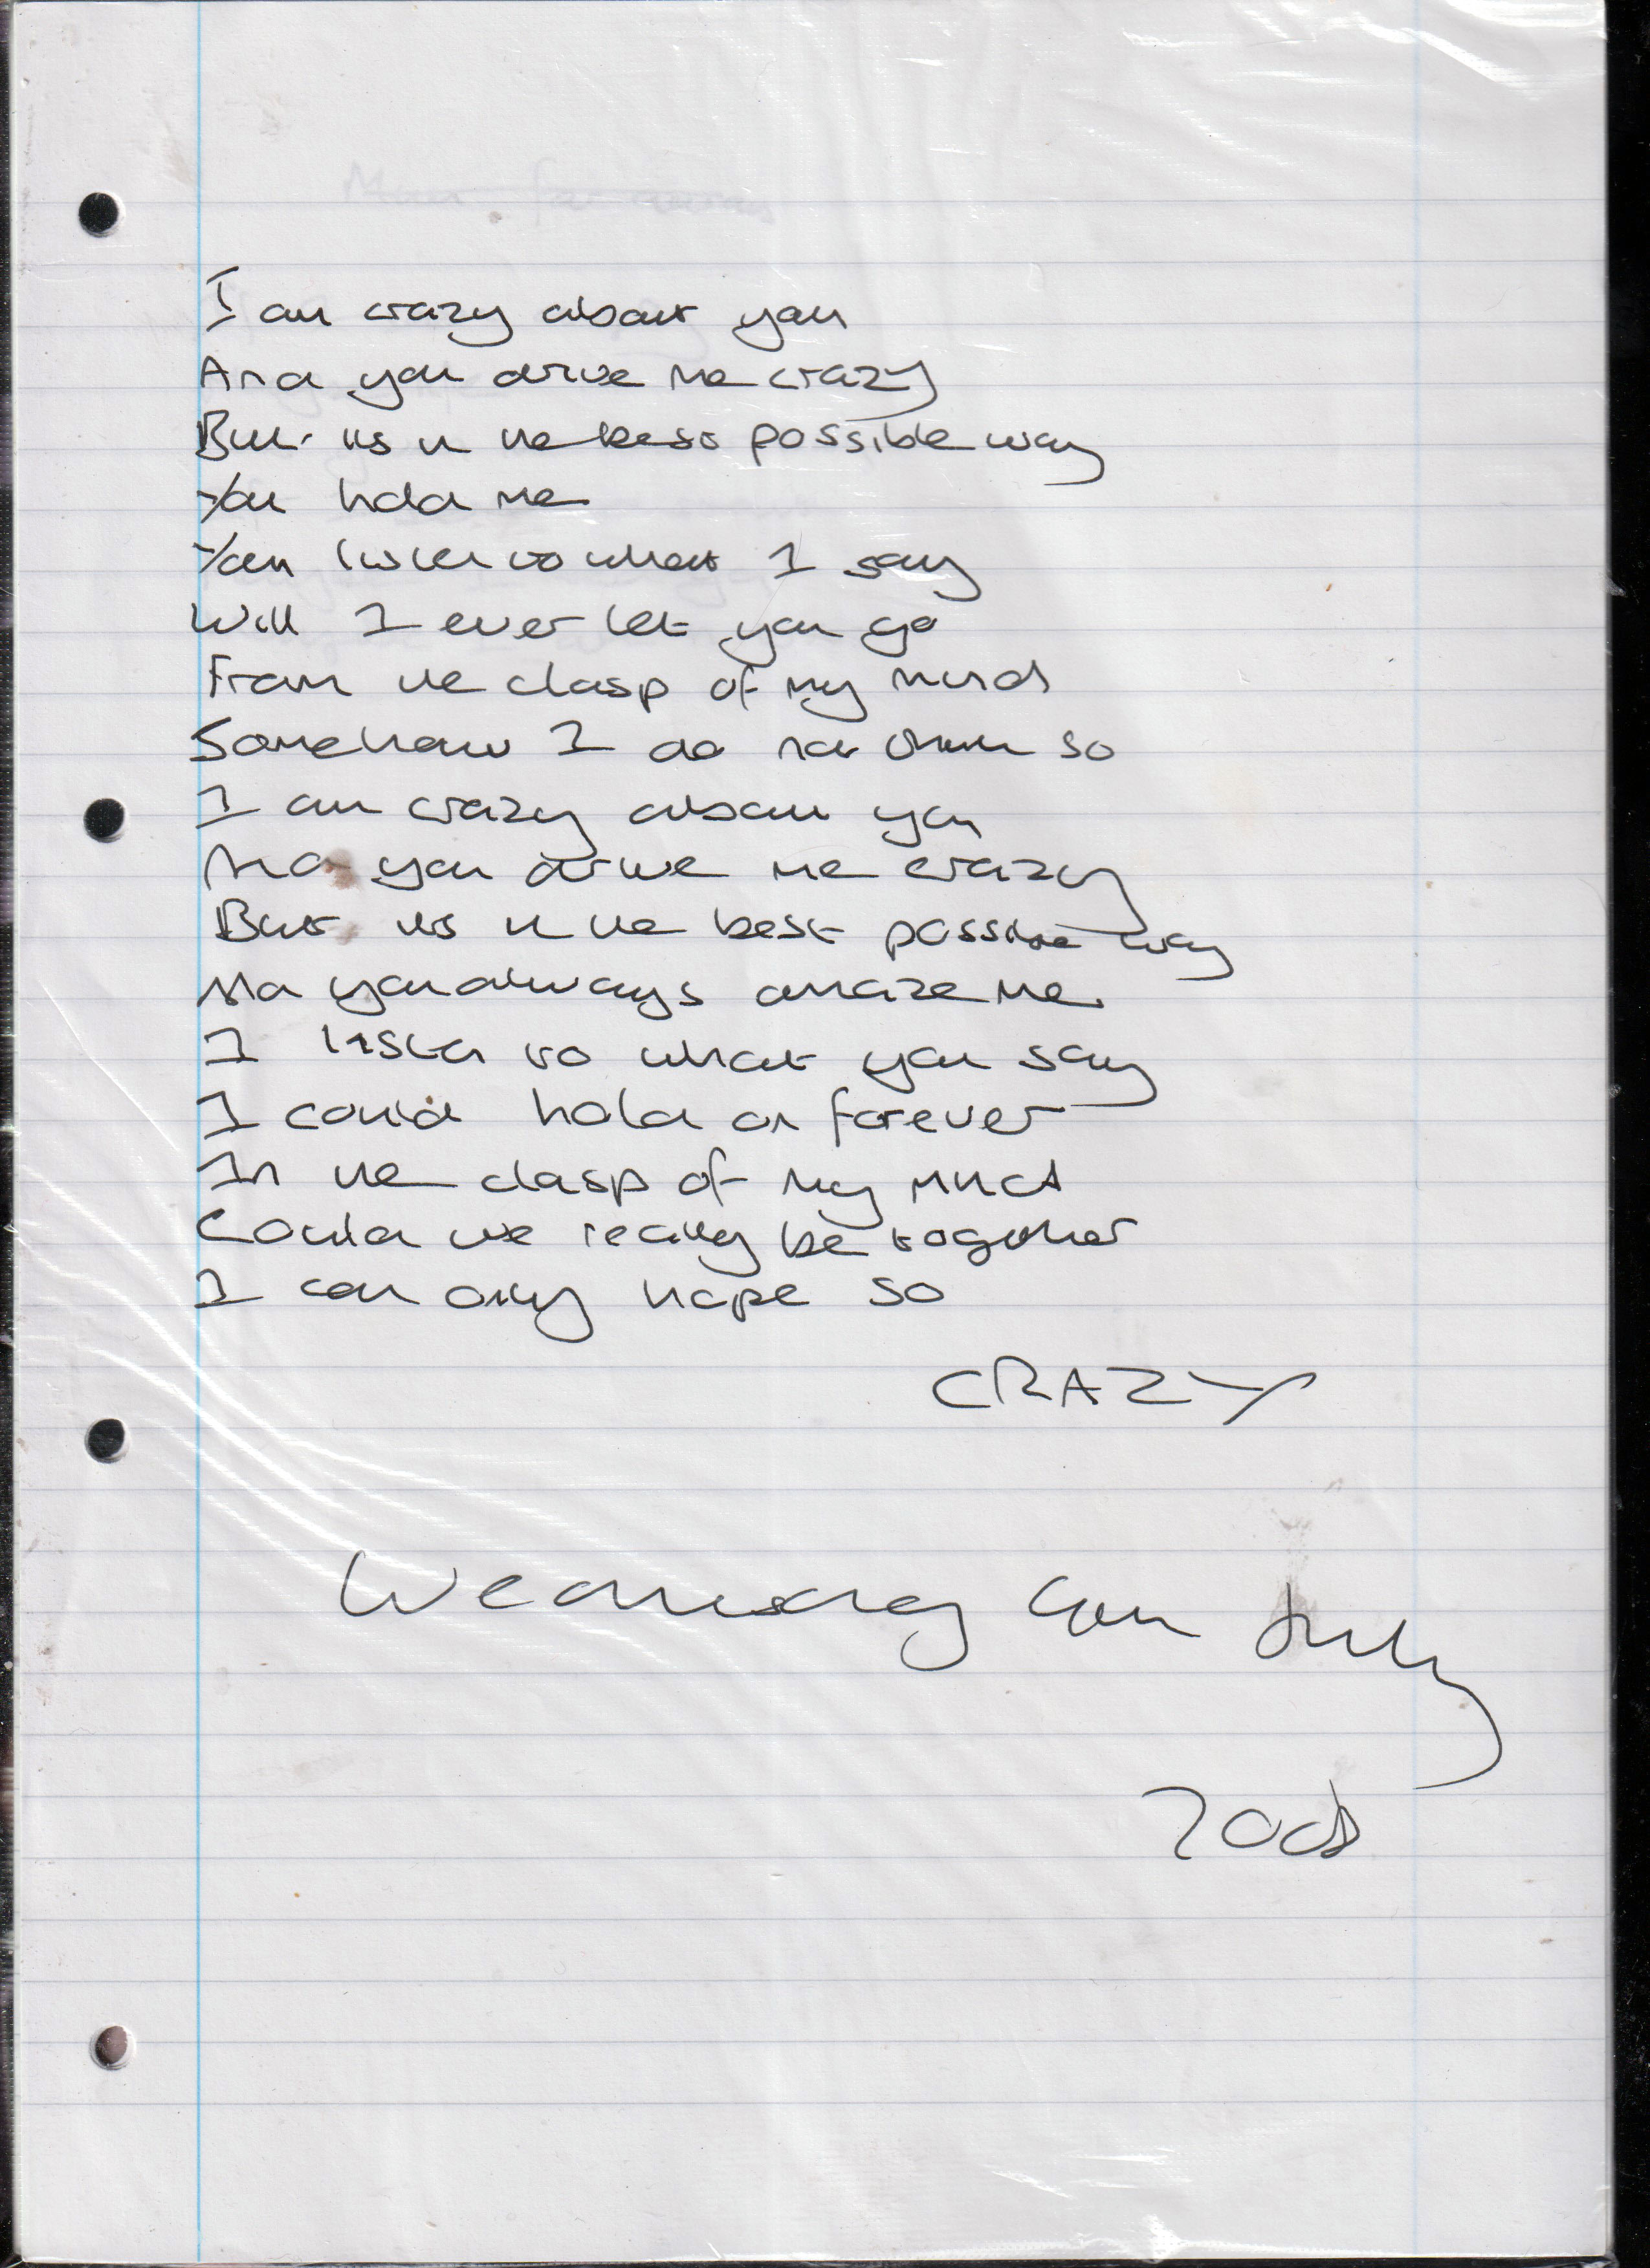 I am crazy about you
And you drive me crazy
But its in the best possible way
You hold me
You listen to what I say
Will I ever let you go
From the clasp of my mind
Somehow I do not think so
I am crazy about you
And you drive me crazy
But its in the best possible way
And you always amaze me.
I listen to what you say
I could hold on forever
In the clasp of my mind
Could we really be together
I can only hope so
CRAZY
Wednesday July
2008